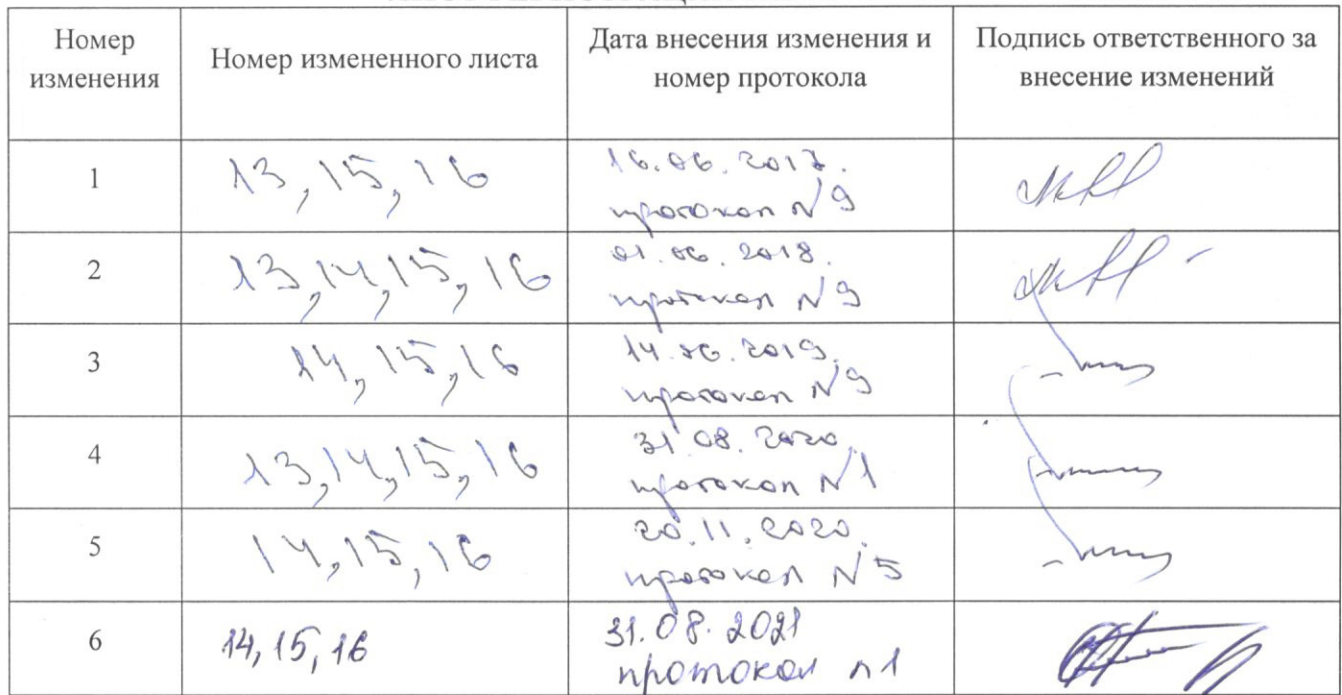 Номер изменения
Номер измененного листа
Дата внесения изменения и номер протокола
Подпись ответственного за внесение изменений
1
13, 15, 16
16.06.2017.
протокол №9
2
13, 14, 15, 16
01.06.2018.
протокол №9
3
14, 15, 16
14.06.2019.
протокол №9
4
13, 14, 15, 16
31.08.2020.
протокол №1
5
14, 15, 16
20.11.2020.
протокол №5
6
14, 15, 16
31.08.2021
протокол n1